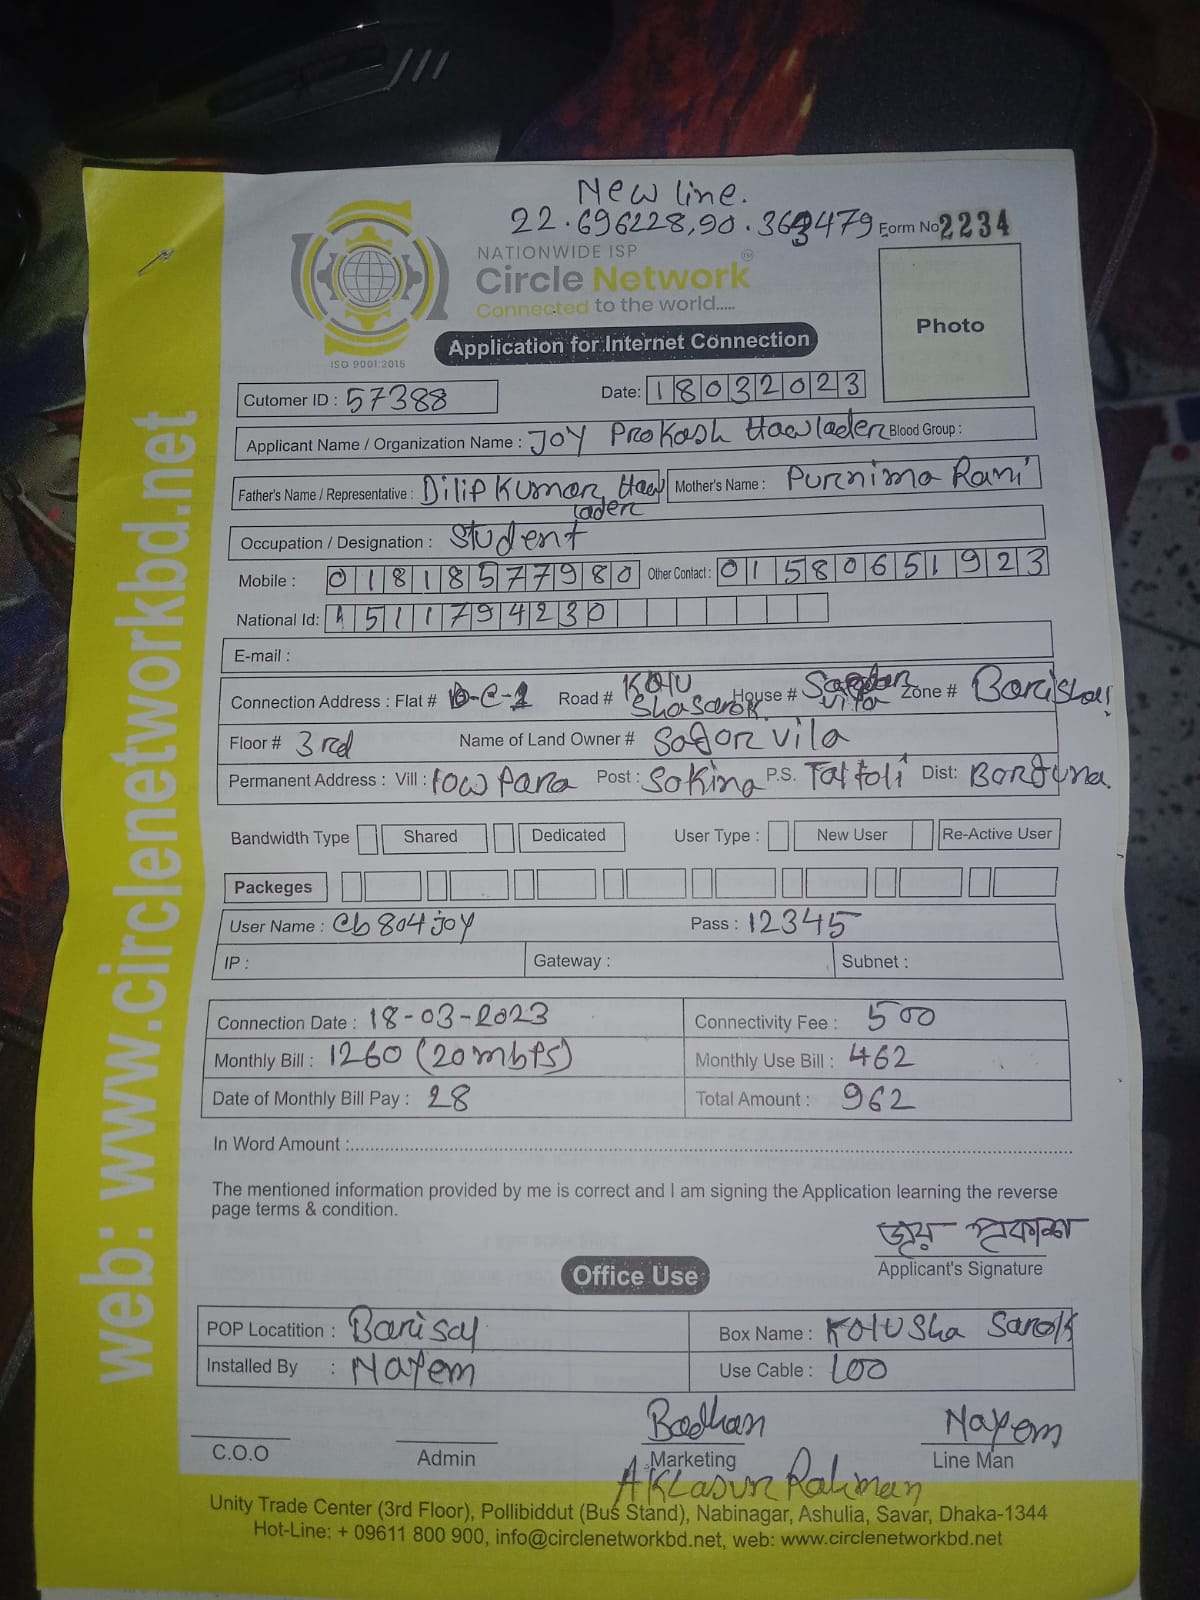 New line.
22.696228,90.363479 Form No 2234
NATIONWIDE ISP
Circle Network
Connected to the world.....
ISO 9001:2015
Application for Internet Connection
Photo
Cutomer ID : 57388 Date: 18032023
Applicant Name / Organization Name : JOY Prokash Hawlader Blood Group :
Father's Name / Representative : Dilip Kumar Hawlader Mother's Name : Purnima Rani
Occupation / Designation : Student
Mobile : 01818577980 Other Contact : 01580651923
National Id: 1511794230
E-mail :
Connection Address : Flat # Road # Kolu Sha Sarok House # vila Zone # Barishal
Floor # 3rd Name of Land Owner # Sagor vila
Permanent Address : Vill : Post : Sokina P.S. Taltoli Dist: Borguna.
Bandwidth Type Shared Dedicated User Type : New User Re-Active User
Packeges
User Name : cb804joy Pass : 12345
IP : Gateway : Subnet :
Connection Date : 18-03-2023 Connectivity Fee : 500
Monthly Bill : 1260 (20mbps) Monthly Use Bill : 462
Date of Monthly Bill Pay : 28 Total Amount : 962
In Word Amount :
The mentioned information provided by me is correct and I am signing the Application learning the reverse
page terms & condition.
জয় প্রকাশ
Applicant's Signature
Office Use
POP Locatition : Barisal Box Name : Kolu Sha Sarok
Installed By : Nayem Use Cable : 100
Badhan Nayem
C.O.O Admin Marketing Line Man
Aklasur Rahman
Unity Trade Center (3rd Floor), Pollibiddut (Bus Stand), Nabinagar, Ashulia, Savar, Dhaka-1344
Hot-Line: + 09611 800 900, info@circlenetworkbd.net, web: www.circlenetworkbd.net
web: www.circlenetworkbd.net